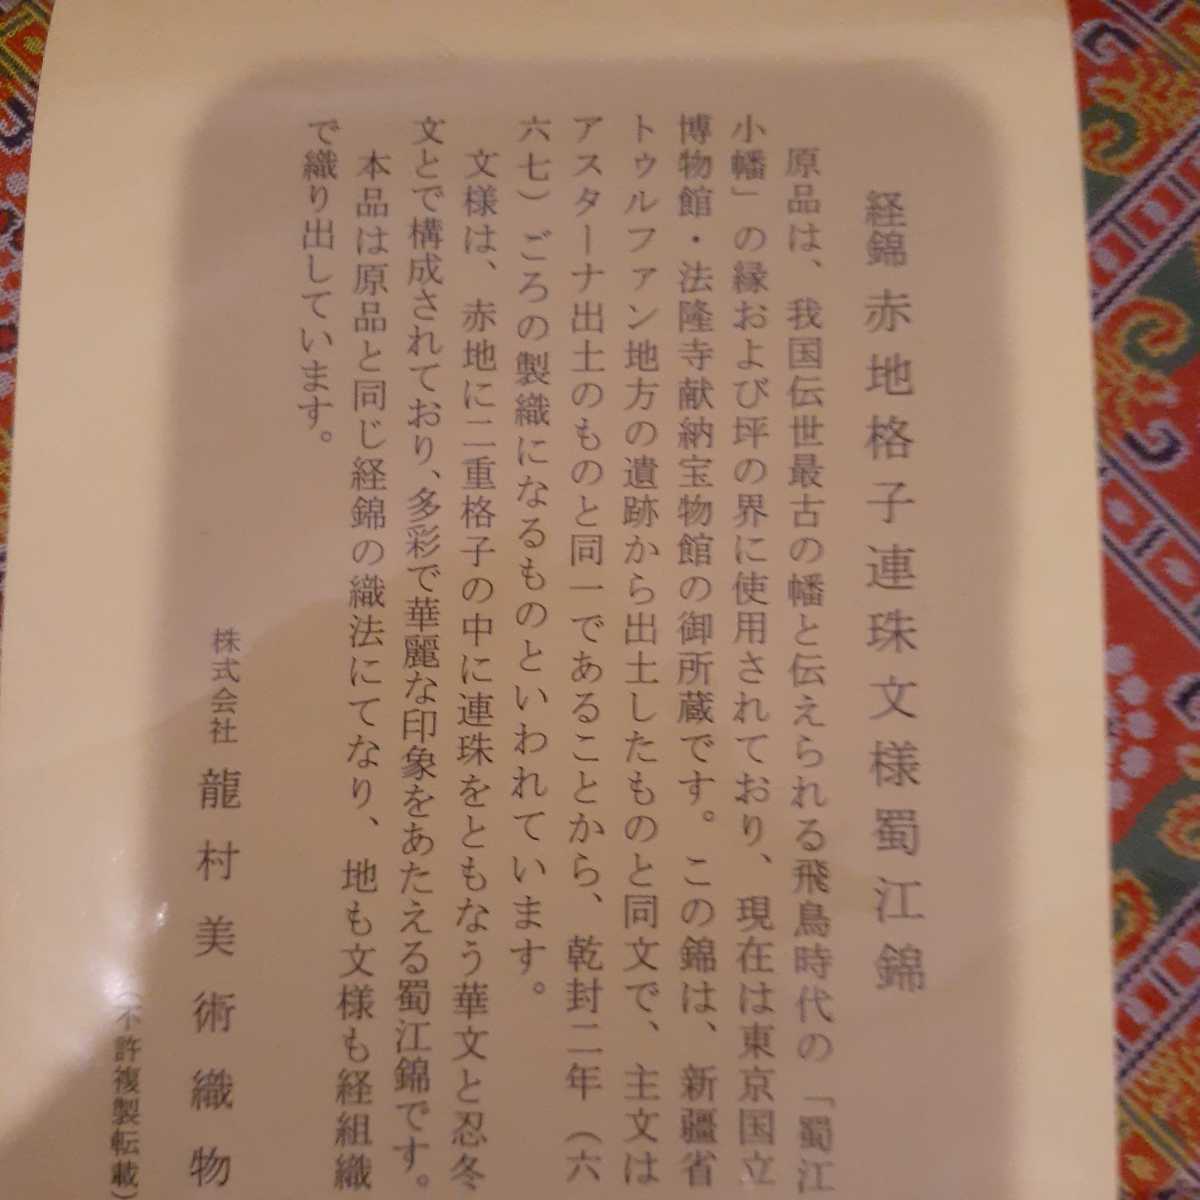 経錦 赤地格子連珠文様蜀江錦
原品は、我国伝世最古の幡と伝えられる飛鳥時代の「蜀江
小幡」の縁および坪の界に使用されており、現在は東京国立
博物館・法隆寺献納宝物館の御所蔵です。この錦は、新疆省
トゥルファン地方の遺跡から出土したものと同文で、主文は
アスターナ出土のものと同一であることから、乾封二年（六
六七）ごろの製織になるものといわれています。
文様は、赤地に二重格子の中に連珠をともなう華文と忍冬
文とで構成されており、多彩で華麗な印象をあたえる蜀江錦です。
本品は原品と同じ経錦の織法にてなり、地も文様も経組織
で織り出しています。
株式会社 龍村美術織物
（不許複製転載）